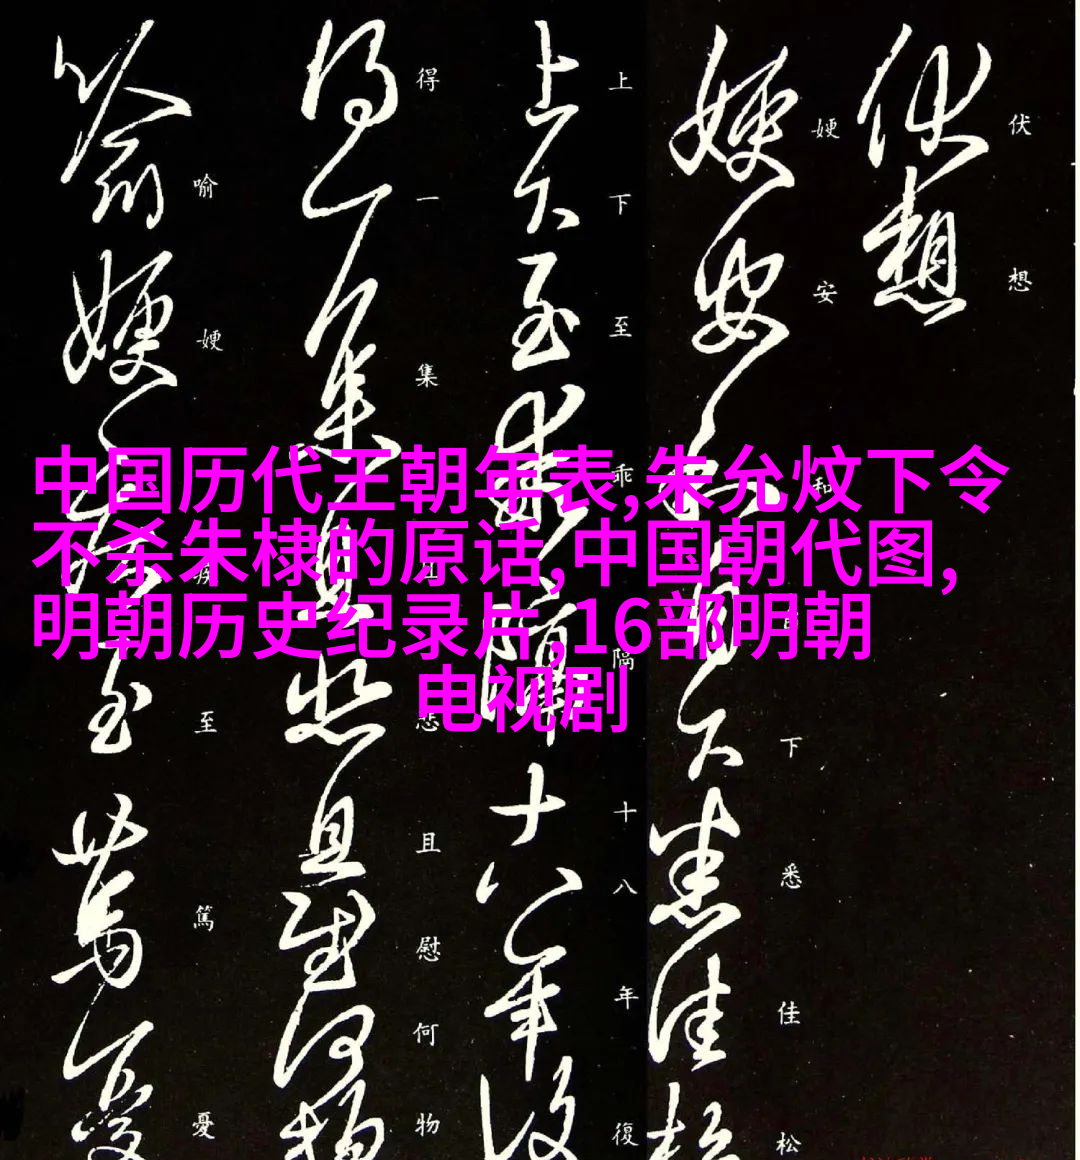 中国历代王朝年表,朱允炆下令
不杀朱棣的原话,中国朝代图,
明朝历史纪录片,16部明朝
电视剧
伏想
㛐安和自下悉佳松
上下至乖隔十八年復
得一集且悲且慰何物
喻㛐疾至篤憂